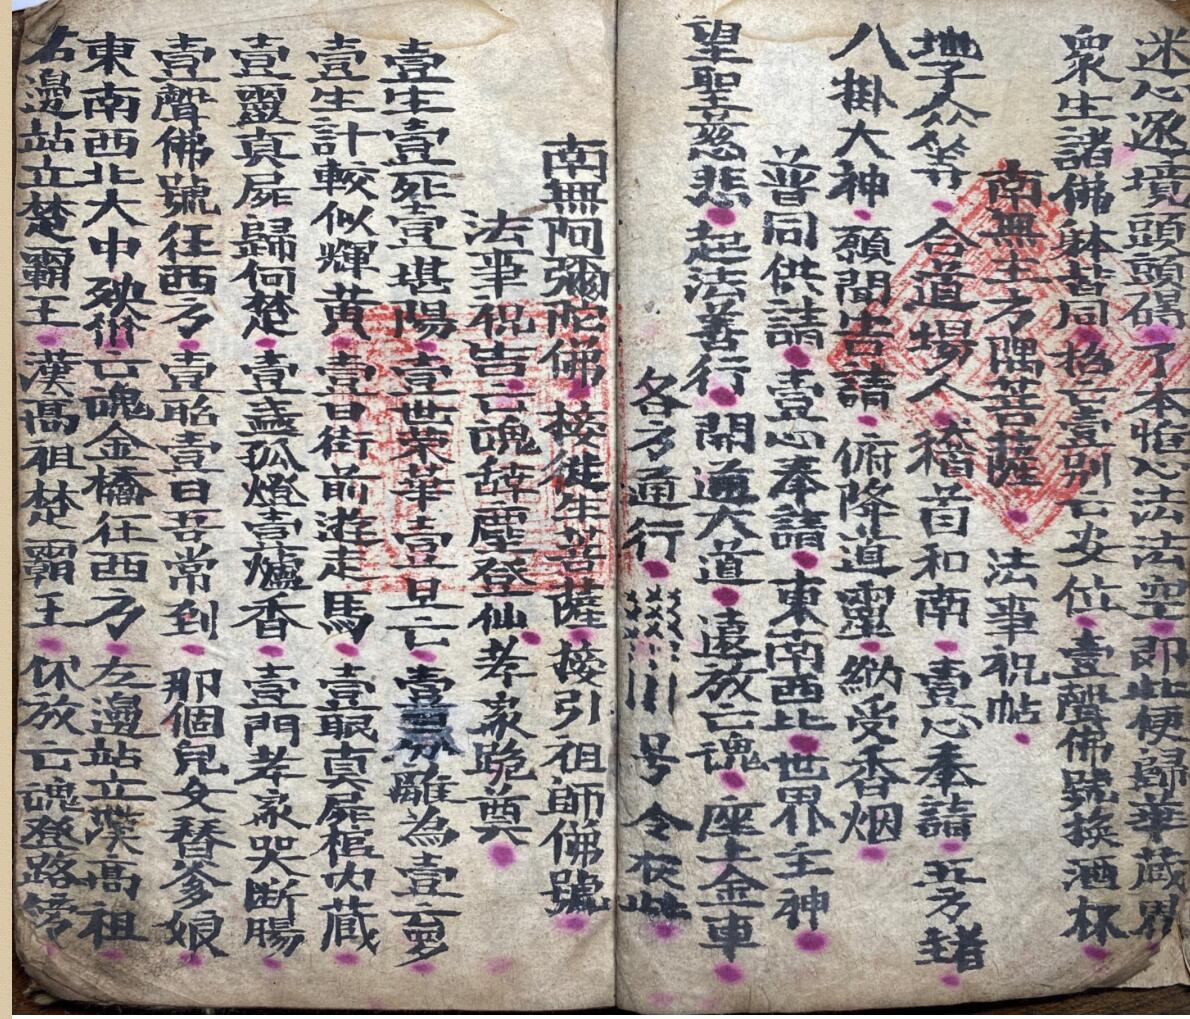 迷心逐境頭頭碍了本惟心法法空即此便歸華蔵界
衆生諸佛躰皆同招亡壹别亡安位壹聲佛號換酒杯
南無土方隅菩薩 法事祝帖
地子众等合道場人稽首和南壹心奉請五方
八掛大神願聞吉請俯降道靈納受香烟
普同供請壹心奉請東南西北世界主神
望聖慈悲起法善行開通大道遠放亡魂座上金車
各方通行 号令
南無阿彌陀佛接徒生菩薩接引祖師佛號
法事祝告亡魂辞塵登仙孝家跪奠
壹生壹死壹堪陽壹世荣華壹旦亡壹 離為壹六夢
壹生計較似輝黃壹日街前遊走馬壹眼真屍棺内蔵
壹靈真屍歸何楚壹盞孤燈壹爐香壹門孝家哭断腸
壹聲佛號往西方壹昭壹日吾常到那個兒女替爹娘
東南西北大中殃 亡魂金橋往西方左邊站立漢高祖
右邊站立楚霸王漢高祖楚霸王休放亡魂登路傍